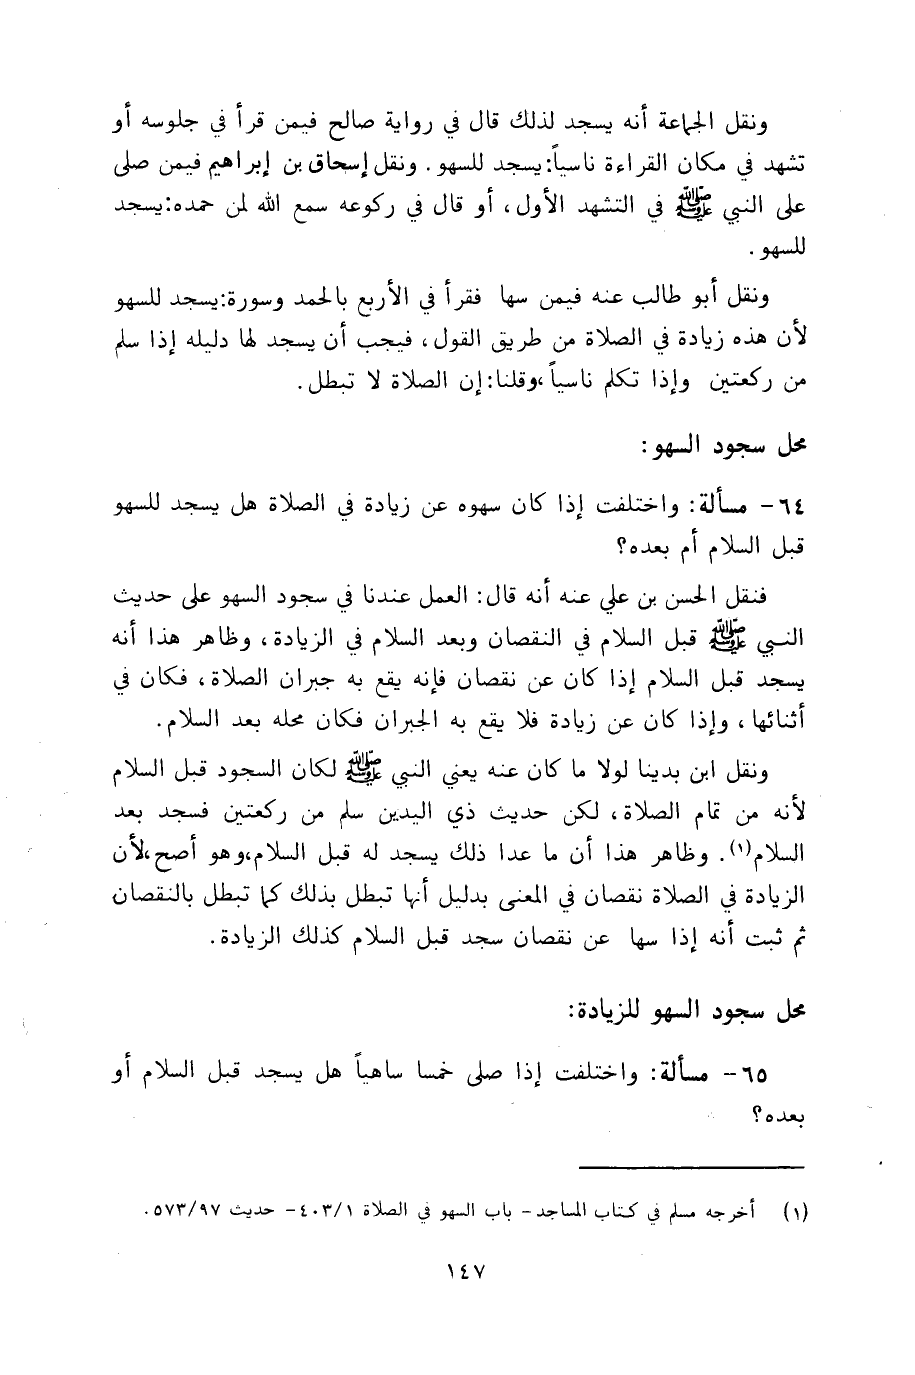 ونقل الجماعة أنه يسجد لذلك قال في رواية صالح فيمن قرأ في جلوسه أو
تشهد في مكان القراءة ناسياً:يسجد للسهو. ونقل إسحاق بن إبراهيم فيمن صلى
على النبي ﷺ في التشهد الأول، أو قال في ركوعه سمع الله لمن حمده:يسجد
للسهو.
ونقل أبو طالب عنه فيمن سها فقرأ في الأربع بالحمد وسورة:يسجد للسهو
لأن هذه زيادة في الصلاة من طريق القول، فيجب أن يسجد لها دليله إذا سلم
من ركعتين وإذا تكلم ناسياً ،وقلنا:إن الصلاة لا تبطل.
محل سجود السهو:
٦٤- مسألة: واختلفت إذا كان سهوه عن زيادة في الصلاة هل يسجد للسهو
قبل السلام أم بعده؟
فنقل الحسن بن علي عنه أنه قال: العمل عندنا في سجود السهو على حديث
النبي ﷺ قبل السلام في النقصان وبعد السلام في الزيادة، وظاهر هذا أنه
يسجد قبل السلام إذا كان عن نقصان فإنه يقع به جبران الصلاة، فكان في
أثنائها، وإذا كان عن زيادة فلا يقع به الجبران فكان محله بعد السلام.
ونقل ابن بدينا لولا ما كان عنه يعني النبي ﷺ لكان السجود قبل السلام
لأنه من تمام الصلاة، لكن حديث ذي اليدين سلم من ركعتين فسجد بعد
السلام(١). وظاهر هذا أن ما عدا ذلك يسجد له قبل السلام،وهو أصح،لأن
الزيادة في الصلاة نقصان في المعنى بدليل أنها تبطل بذلك كما تبطل بالنقصان
ثم ثبت أنه إذا سها عن نقصان سجد قبل السلام كذلك الزيادة.
محل سجود السهو للزيادة:
٦٥- مسألة: واختلفت إذا صلى خمسا ساهياً هل يسجد قبل السلام أو
بعده؟
(١) أخرجه مسلم في كتاب المساجد- باب السهو في الصلاة ٤٠٣/١- حديث ٥٧٣/٩٧.
١٤٧